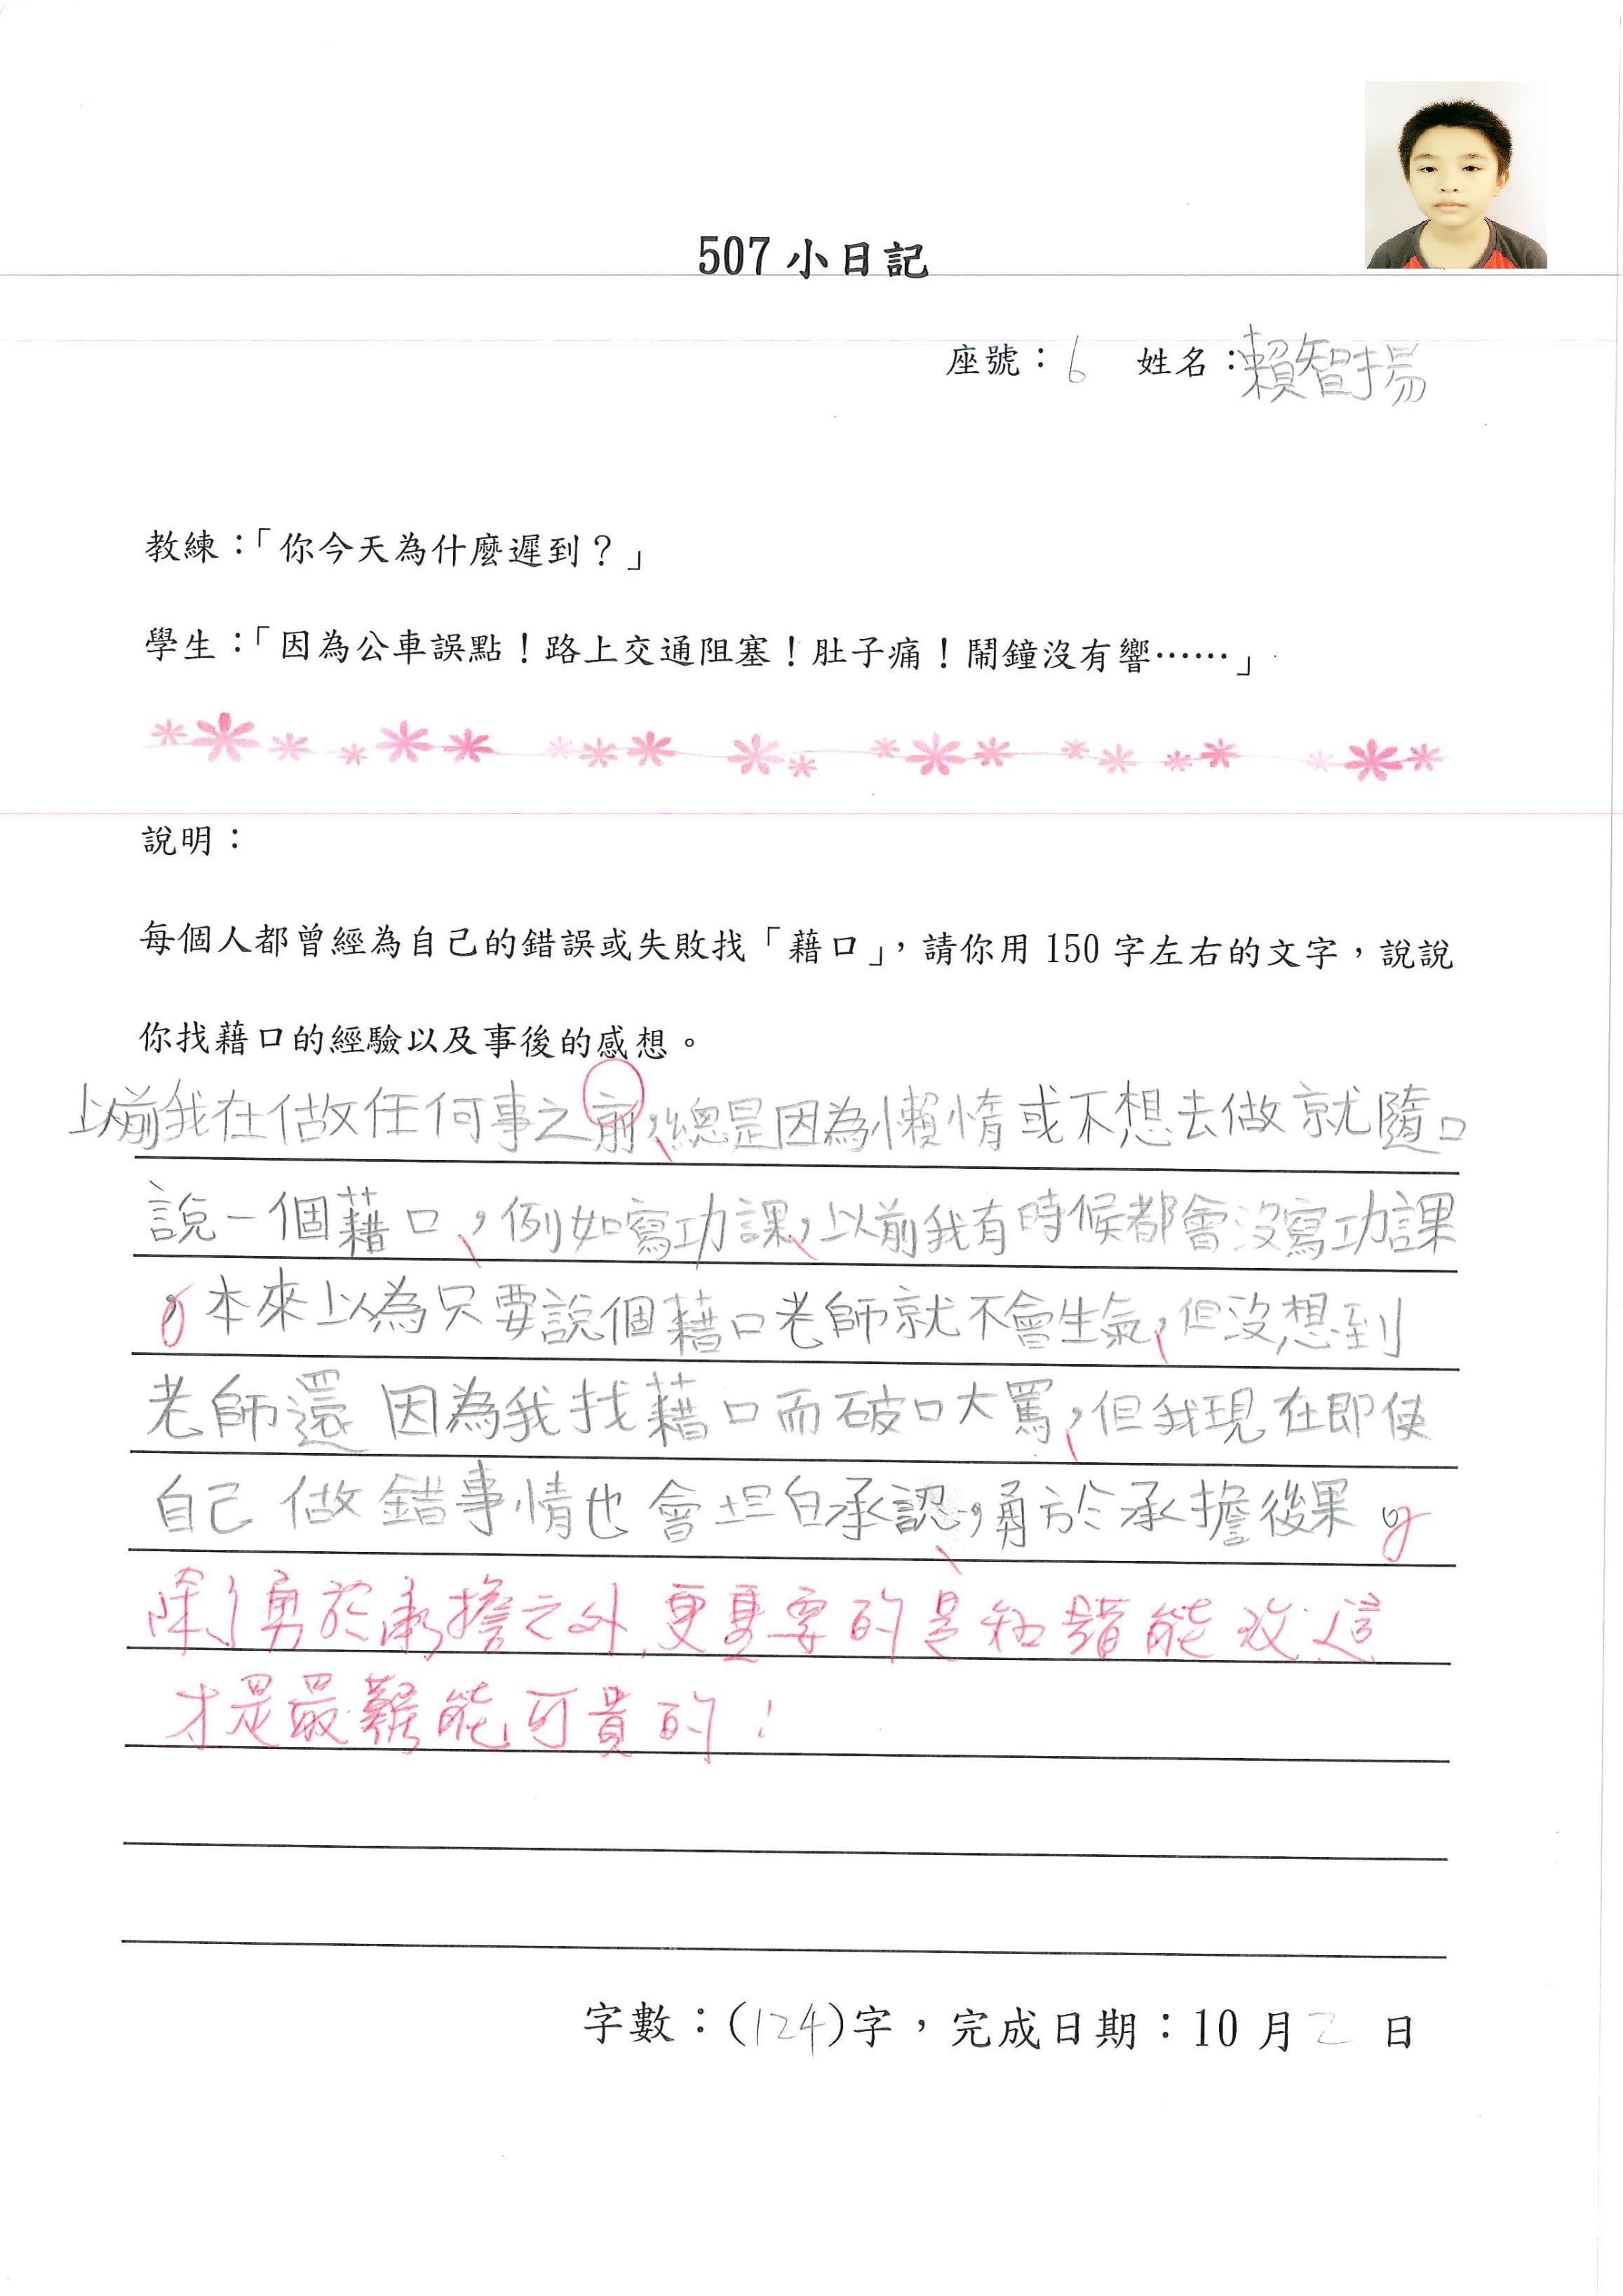 507 小日記
座號：6 姓名：賴智揚
教練：「你今天為什麼遲到？」
學生：「因為公車誤點！路上交通阻塞！肚子痛！鬧鐘沒有響……」
說明：
每個人都曾經為自己的錯誤或失敗找「藉口」，請你用 150 字左右的文字，說說
你找藉口的經驗以及事後的感想。
以前我在做任何事之前，總是因為懶惰或不想去做就隨口
說一個藉口，例如寫功課，以前我有時候都會沒寫功課
，本來以為只要說個藉口老師就不會生氣，但沒想到
老師還因為我找藉口而破口大罵，但我現在即使
自己做錯事情也會坦白承認，勇於承擔後果。
除了勇於承擔之外，更重要的是知錯能改，這
才是最難能可貴的！
字數：(124)字，完成日期：10 月 2 日